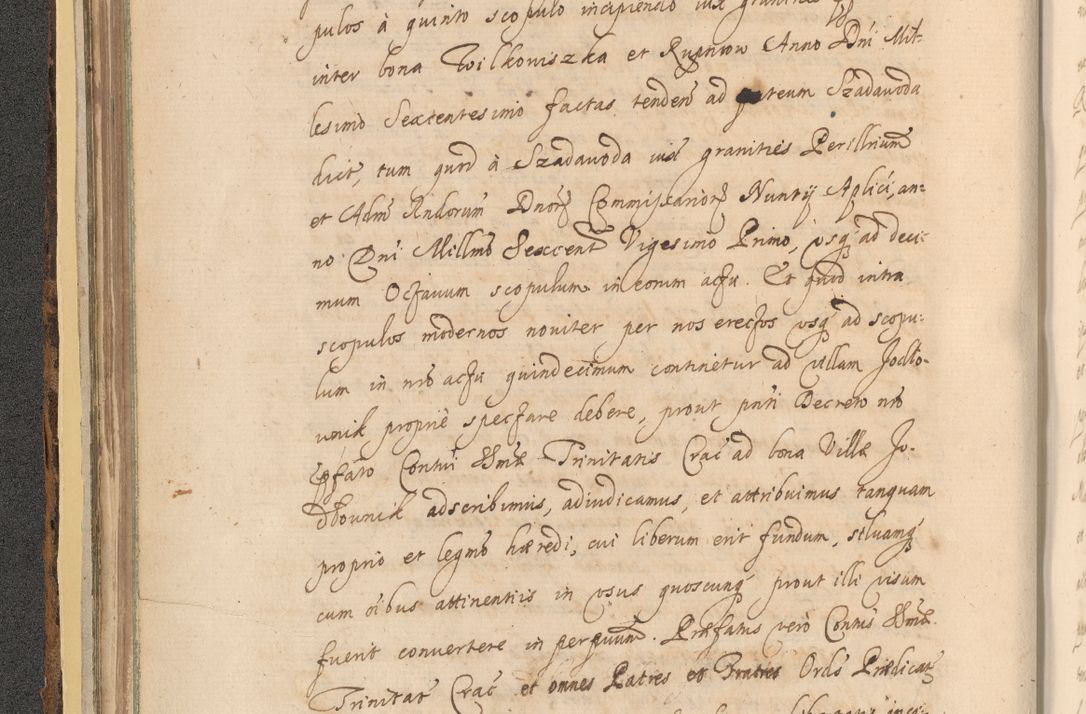 pulos à quinto scopulo incipiendo iux granities
inter bona Wilkowiszka et Rupniow Anno Dni Mil-
lesimo Sexcentesimo factas tenden ad puteum Szadawoda
dict, tum quod à Szadawoda iux granities Perillrium
et Adm Rndorum Dnorz Commissariorz Nuntij Aplici, an-
no Dni Millmo Sexcent Vigesimo Primo, vsq ad deci-
mum Octauum scopulum in eorum actu. Et quid intra
scopulos modernos noviter per nos erectos vsq ad scopu-
lum in nro actu quindecimum continetur ad villam Jodło-
wnik propriè spectare debere, prout pnti Decreto nro
ppfato Contui SSmæ Trinitatis Crac ad bona Villæ Jo-
dłownik adscribimus, adiudicamus, et attribuimus tanquam
proprio et legmo hæredi, cui liberum erit fundum, siluamq
cum oibus attinentiis in vsus quoscunq prout illi visum
fuerit convertere in perpuum. Præfatus verò Contus SSmæ
Trinitat Crac et omnes Patres et Fratres Ordis Prædicat